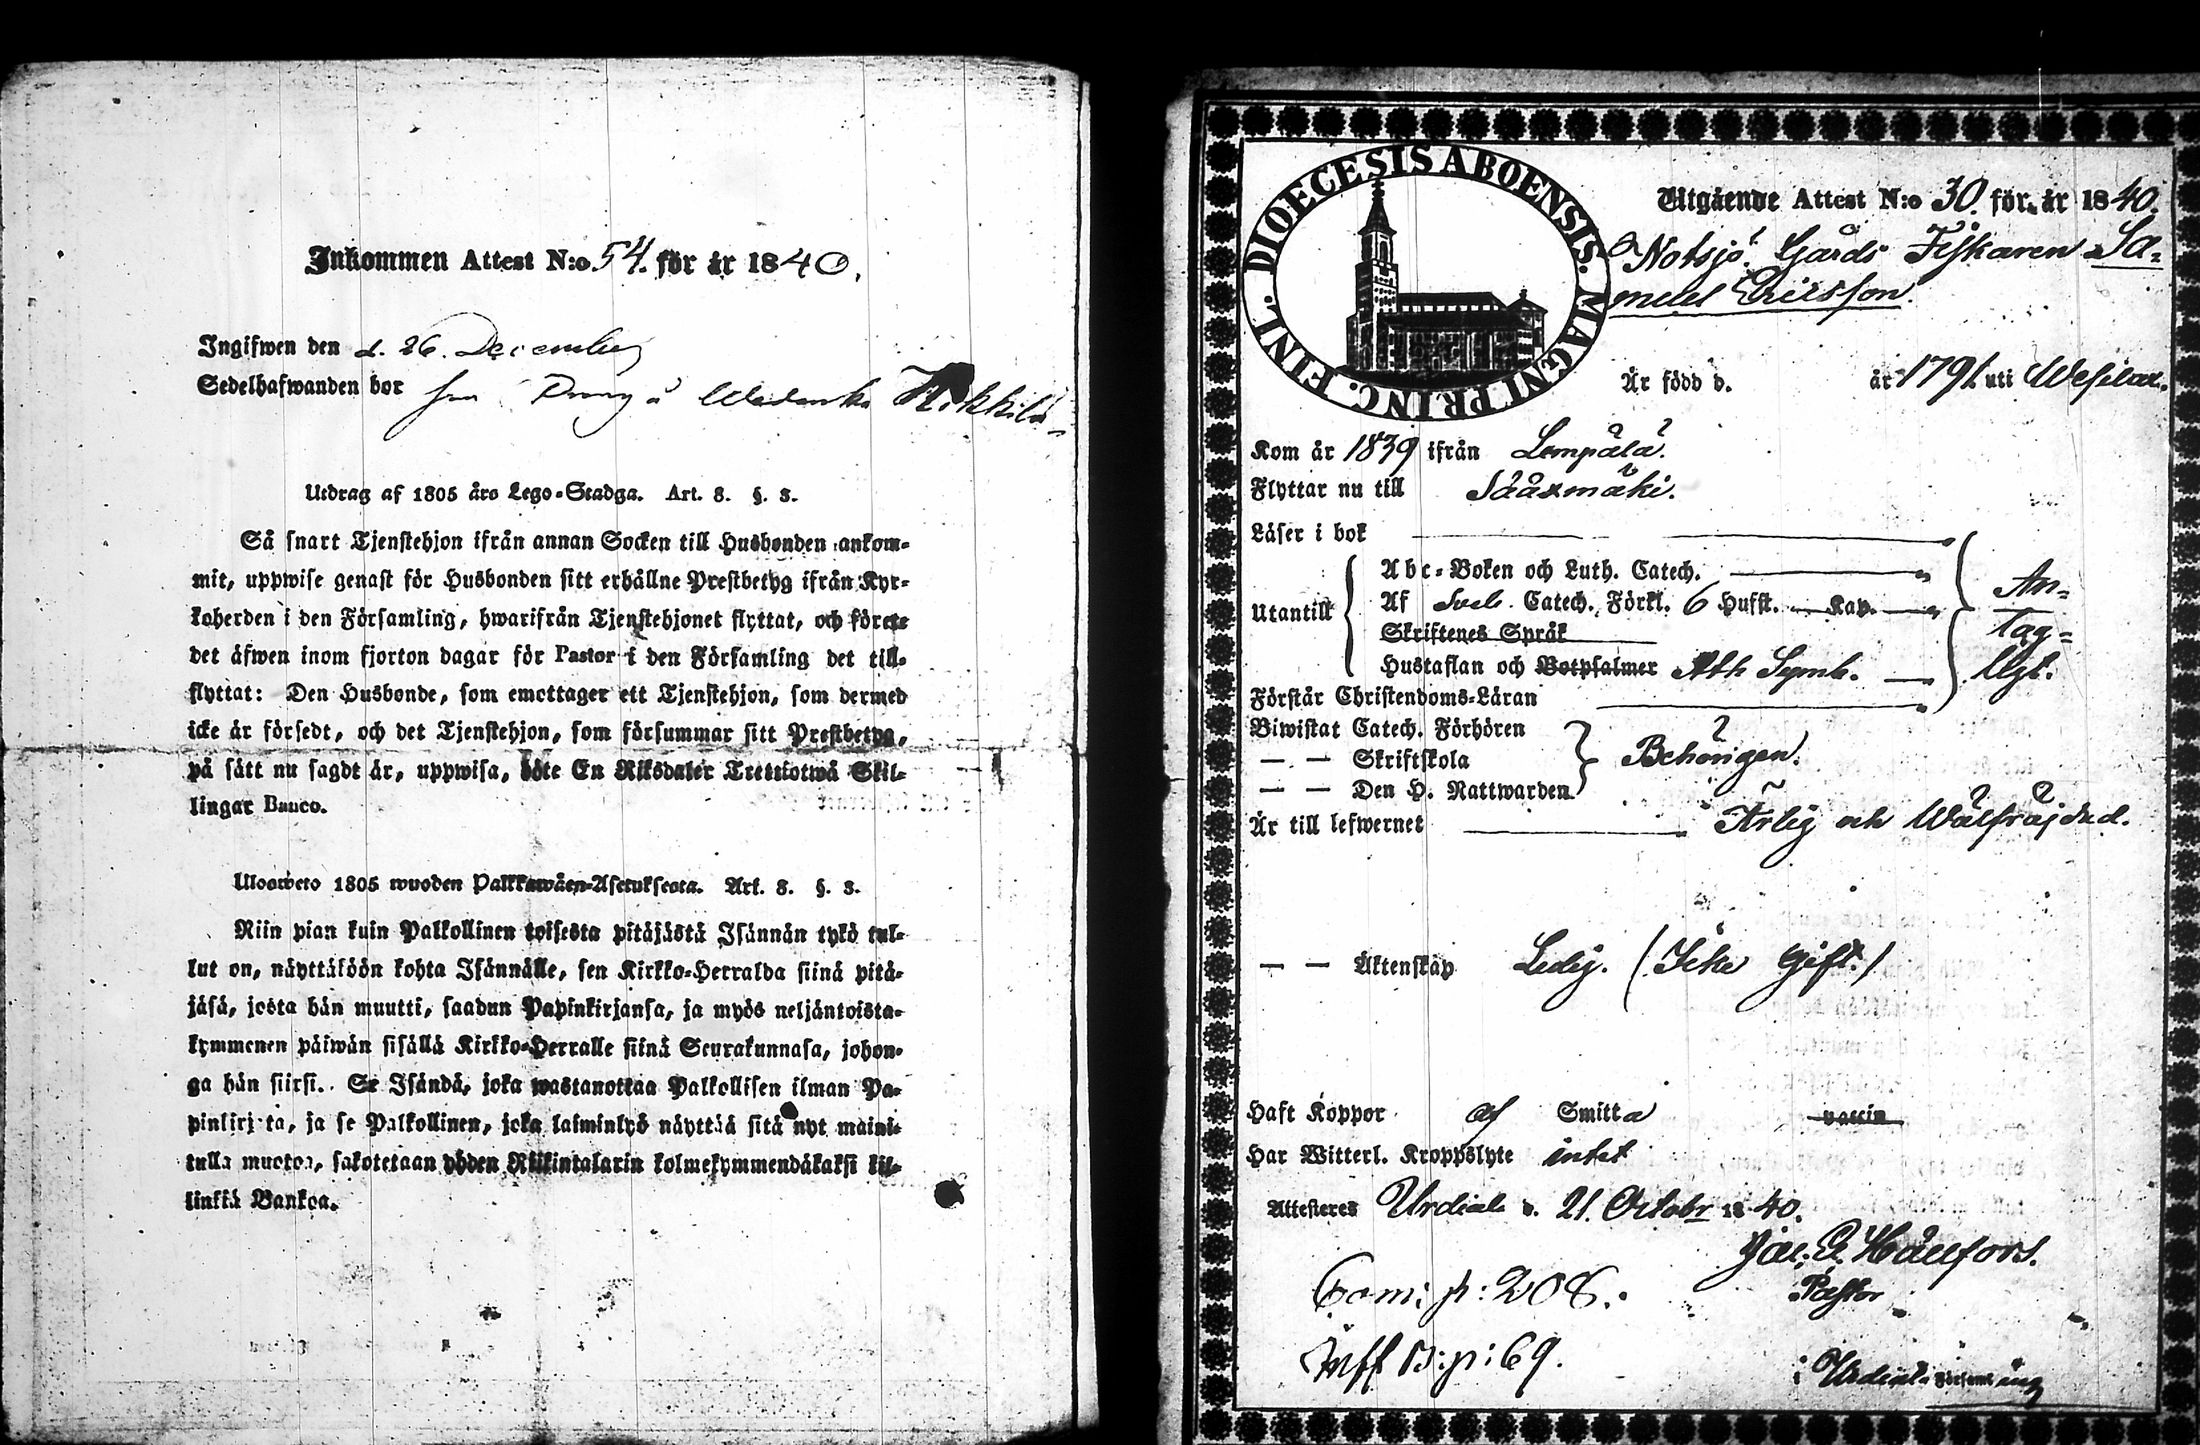 Inkommen Attest N:o 54. för år 1840.
Ingifwen den d. 26. December
Sedelhafwanden bor som Dräng å Hakkila
Utdrag af 1805 års Lego-Stadga. Art. 8. §. 3.
Så snart Tjenstehjon ifrån annan Socken till Husbonden ankom-
mit, uppwise genast för Husbonden sitt erhållne Prestbetyg ifrån Kyr-
koherden i den Församling, hwarifrån Tjenstehjonet flyttat, och förete
det äfwen inom fjorton dagar för Pastor i den Församling det till-
flyttat: Den Husbonde, som emottager ett Tjenstehjon, som dermed
icke är försedt, och det Tjenstehjon, som försummar sitt Prestbetyg,
på sätt nu sagdt är, uppwisa, böte En Riksdaler Trettiotwå Skil-
lingar Banco.
Uloswето 1805 wuoden Palkkawäen-Asetuksesta. Art. 8. §. 3.
Niin pian kuin Palkollinen toisesta pitäjästä Isännän tykö tul-
lut on, näyttäköön kohta Isännälle, sen Kirkko-Herralda siinä pitä-
jäsä, josta hän muutti, saadun Papinkirjansa, ja myös neljäntoista-
kymmenen päiwän sisällä Kirkko-Herralle siinä Seurakunnasa, johon-
ga hän siirsi. Se Isändä, joka wastanottaa Palkollisen ilman Pa-
pinkirjata, ja se Palkollinen, joka laiminlyö näyttää sitä nyt maini-
tulla muotoa, sakotetaan yhden Riikintalarin kolmekymmendäkaksi kil-
linkiä Bankoa.
DIOECESIS ABOENSIS. MAGNI PRINC. FINL.
Utgående Attest N:o 30. för år 1840.
Notsjö Gårds Fiskaren Sa-
muel Ericsson.
Är född d. år 1791. uti Wesilax.
Kom år 1839 ifrån Lempälä.
Flyttar nu till Sääxmäki.
Läser i bok
Abc-Boken och Luth. Catech.
Utantill Af Sveb. Catech. Förkl. 6 Hufst. Kap.
Skriftenes Språk
Hustaflan och Botpsalmer Ath. Symb.
An-
tag-
ligt.
Förstår Christendoms-Läran
Biwistat Catech. Förhören
— — Skriftskola Behörigen.
— — Den H. Nattwarden
Är till lefwernet Ärlig och Wälfräjdad.
— — Äktenskap Ledig. (Icke gift.)
Haft Koppor af Smitta vaccin
Har Witterl. Kroppslyte intet
Attesteres Urdiala d. 21. Octobr 1840.
Jac. G. Hällfors.
Pastor
Com: p: 208.
Inff B: p: 69.
i Urdiala Församling